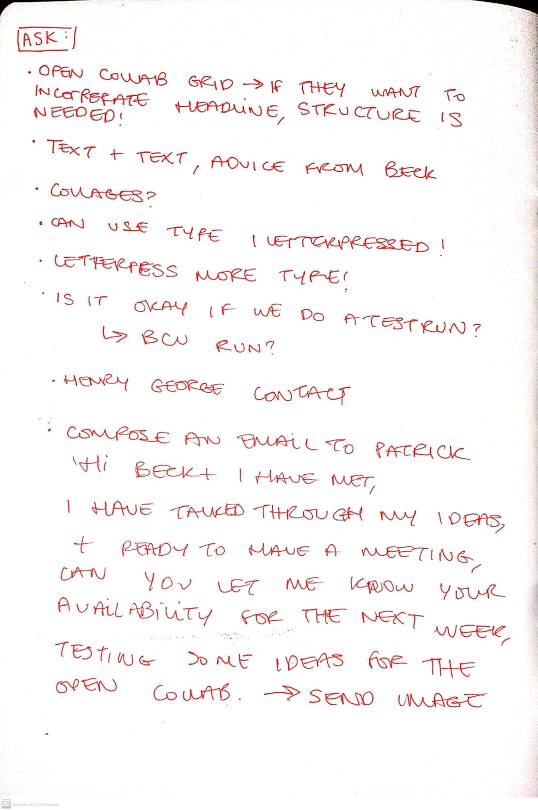 ASK:
· OPEN COLLAB GRID → IF THEY WANT TO
INCORPERATE HEADLINE, STRUCTURE IS
NEEDED!
· TEXT + TEXT, ADVICE FROM BECK
· COLLAGES?
· CAN USE TYPE I LETTERPRESSED!
· LETTERPESS MORE TYPE!
· IS IT OKAY IF WE DO A TEST RUN?
↳ BCU RUN?
· HENRY GEORGE CONTACT
· COMPOSE AN EMAIL TO PATRICK
'Hi BECK + I HAVE MET,
I HAVE TALKED THROUGH MY IDEAS,
+ READY TO HAVE A MEETING,
CAN YOU LET ME KNOW YOUR
AVAILABILITY FOR THE NEXT WEEK,
TESTING SOME IDEAS FOR THE
OPEN COLLAB. → SEND IMAGE